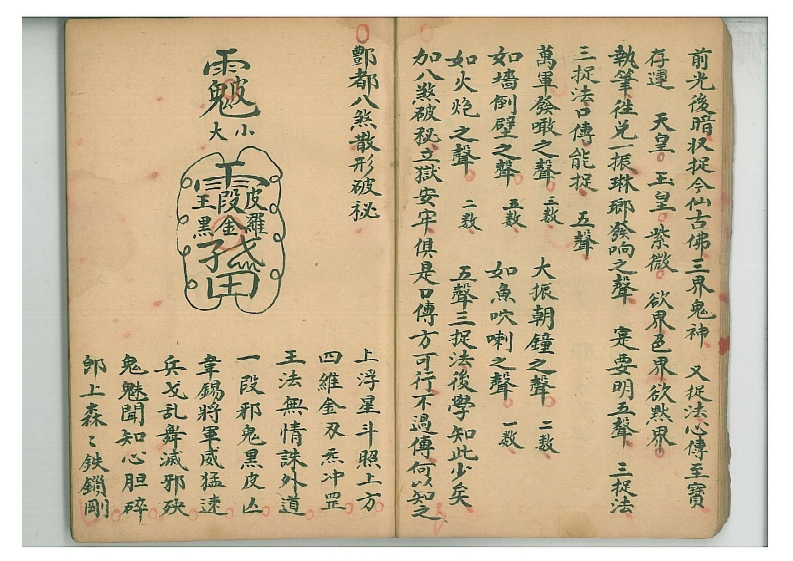 前光後暗狀捉今仙古佛三界鬼神 又捉法心傳至寶
存運 天皇 玉皇 紫微 欲界色界欲点界
執筆往兑一振琳瑯發响之聲 寔要明五聲 三捉法
三捉法口傳能捉 五聲
萬軍發噉之聲 三数 大振朝鐘之聲 二数
如墻倒壁之聲 五数 如魚吹喇之聲 一数
如火炮之聲 二数 五聲三捉法後學知此少矣
加八煞破秘立獄安牢俱是口傳方可行不過傳何以知之
酆都八煞散形破秘
大小
王段皮
黑金羅
田
上浮星斗照上方
四維金刃炁冲罡
王法無情誅外道
一段邪鬼黑皮凶
韋錫將軍威猛速
兵戈乱舞滅邪殃
鬼魅聞知心胆碎
郎上森〻鉄鎖剛